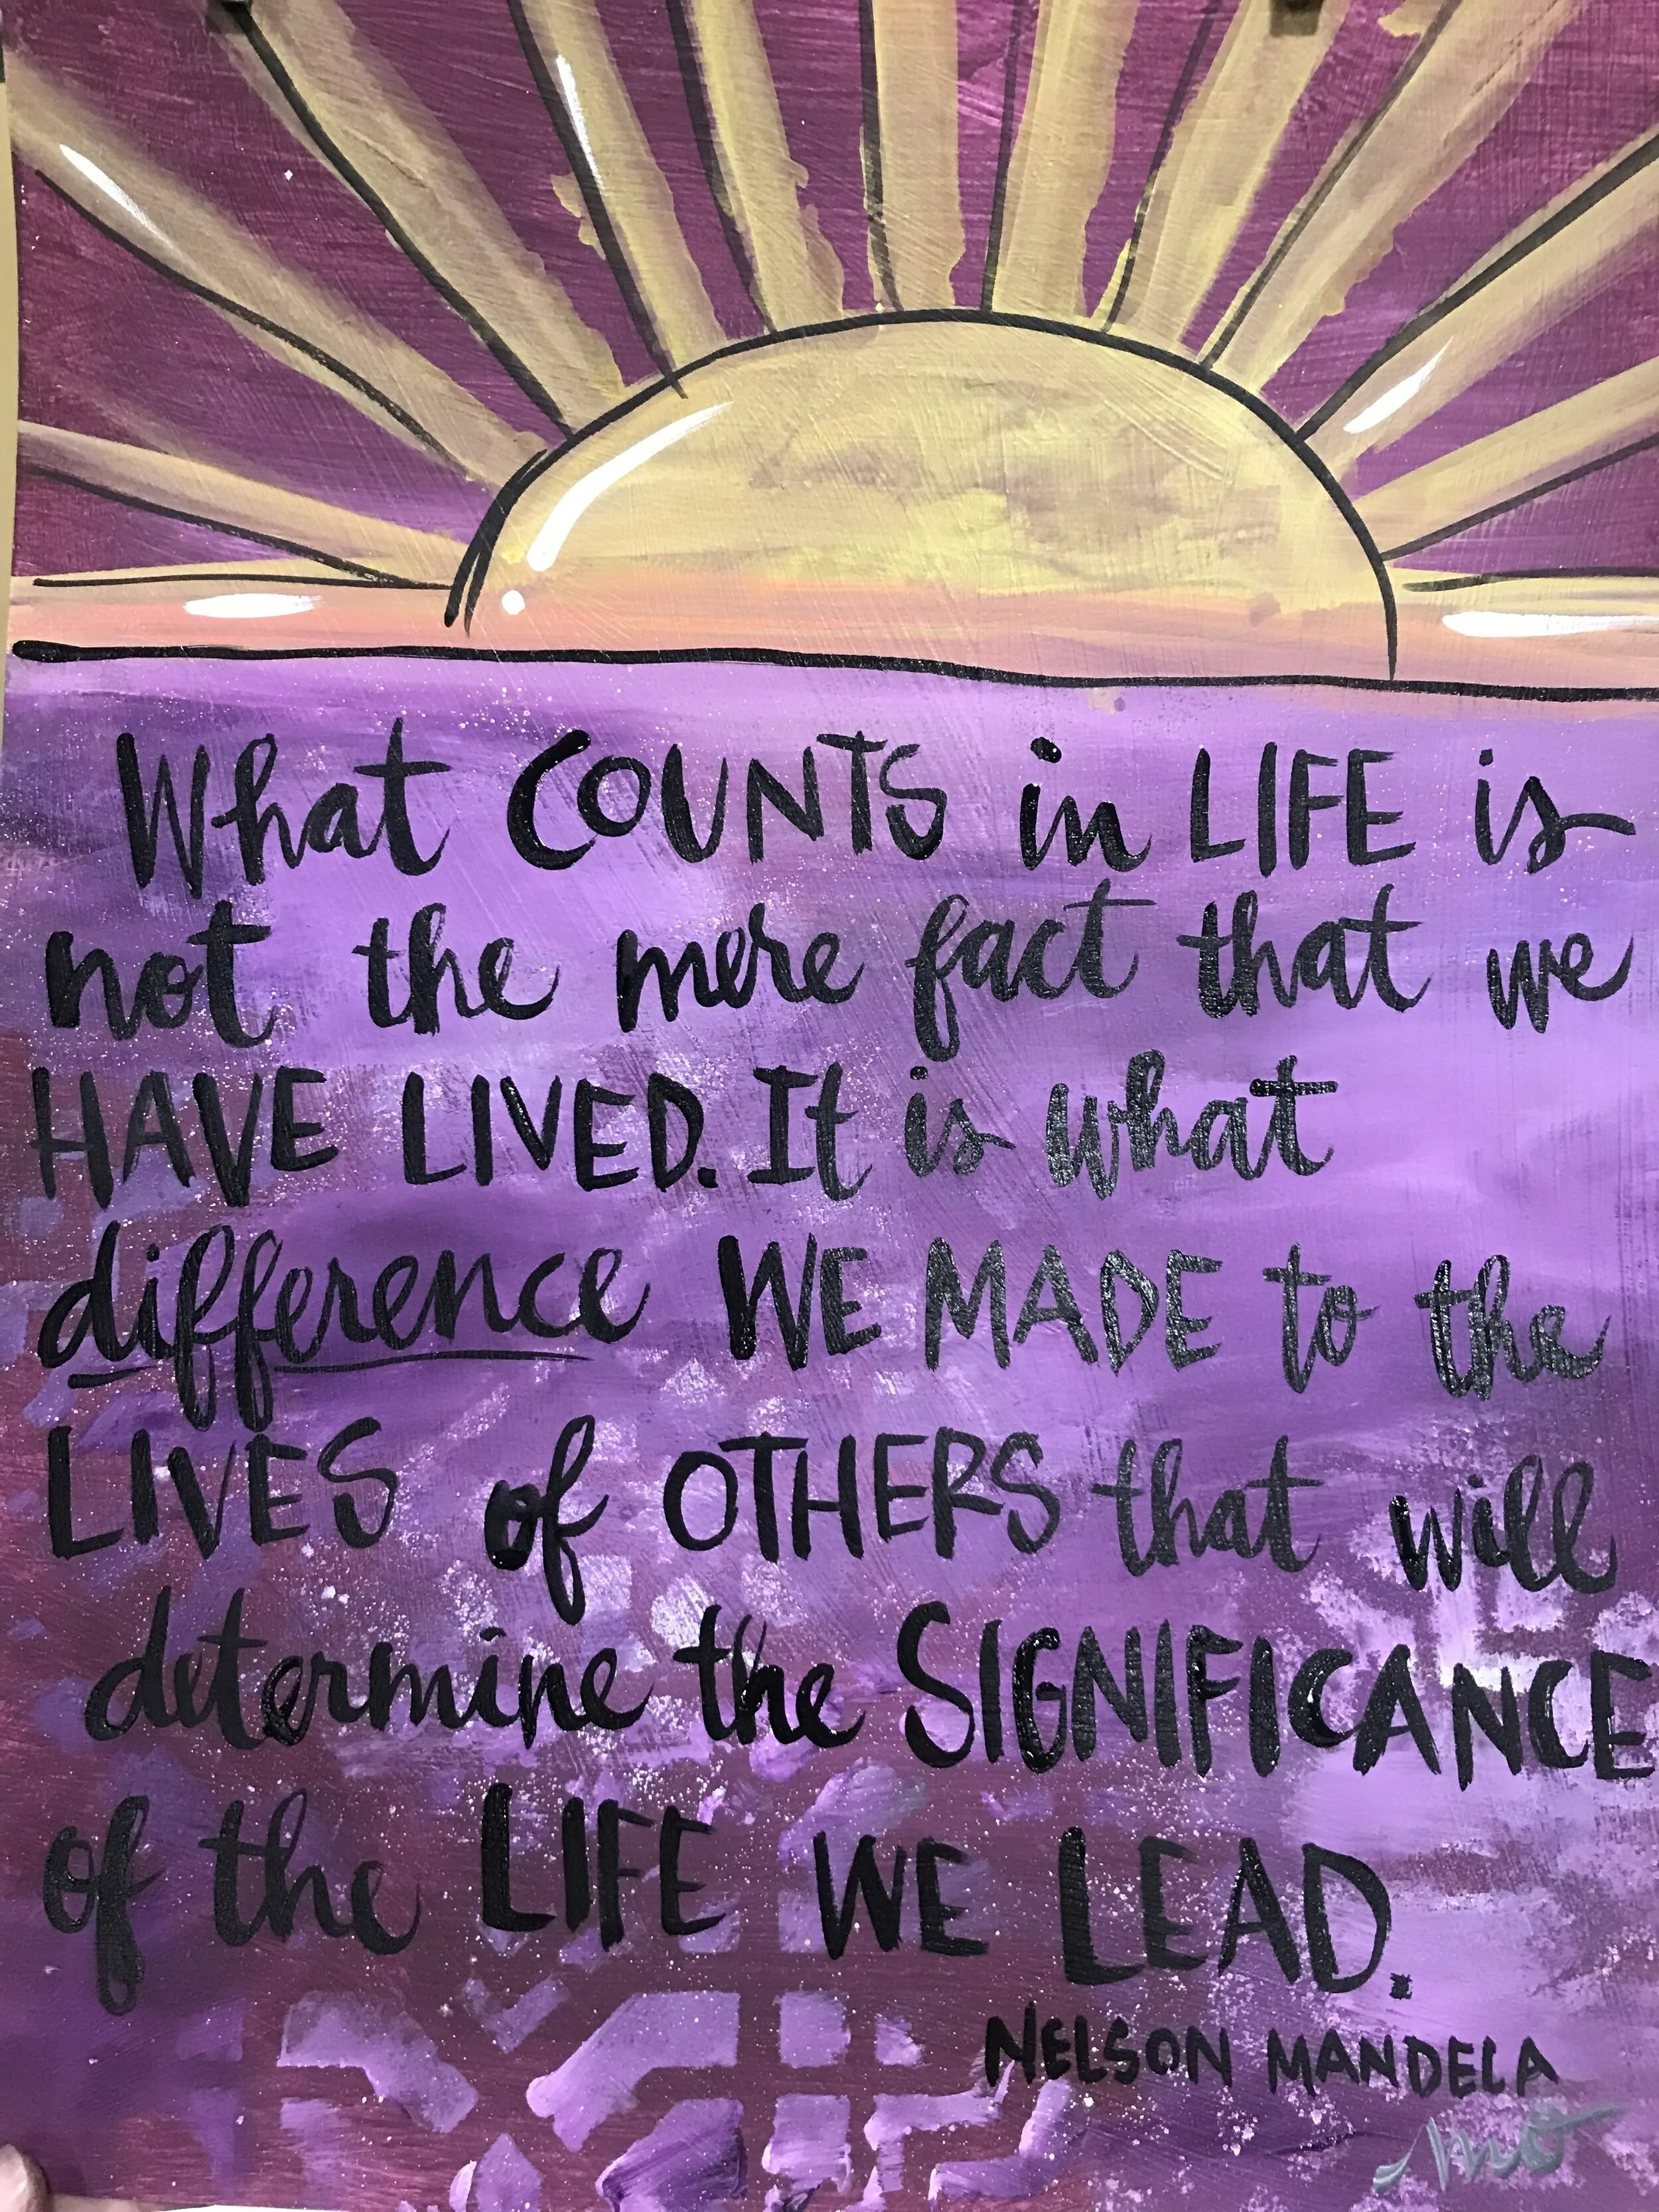 What COUNTS in LIFE is
not the mere fact that we
HAVE LIVED. It is what
difference WE MADE to the
LIVES of OTHERS that will
determine the SIGNIFICANCE
of the LIFE WE LEAD.
NELSON MANDELA